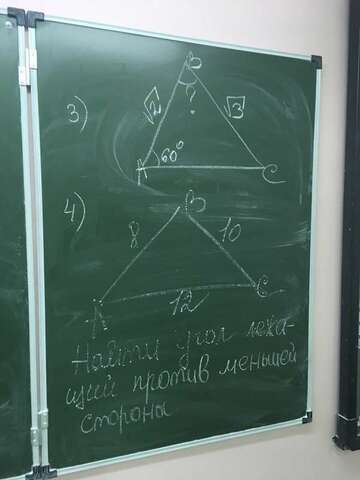 3)
B
√2
?
√3
A
60°
C
4)
B
8
10
A
12
C
Найти угол лежа-
щий против меньшей
стороны